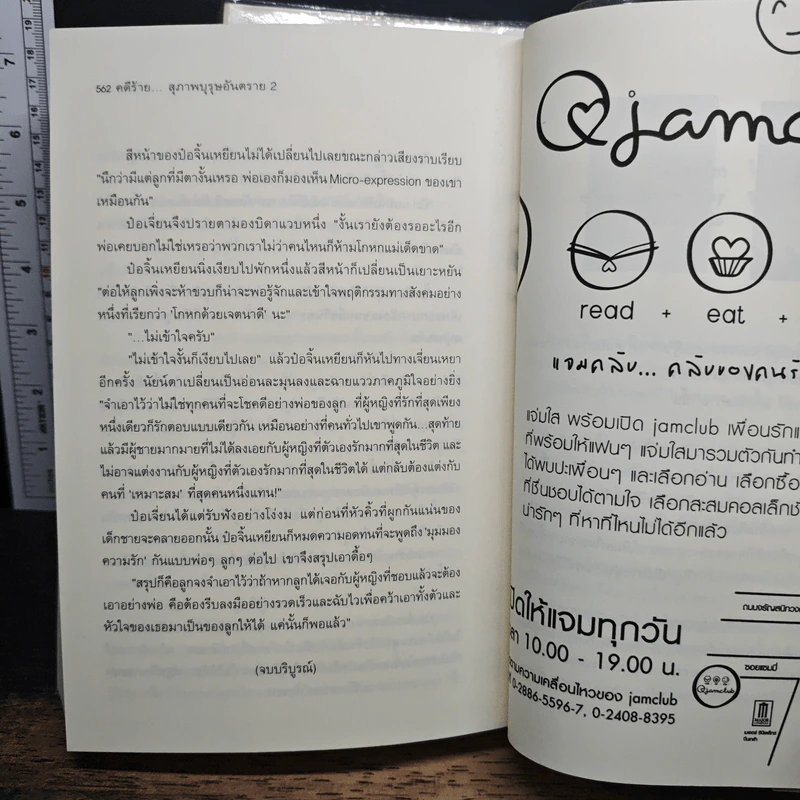 562 คดีร้าย... สุภาพบุรุษอันตราย 2
สีหน้าของป๋อจิ้นเหยียนไม่ได้เปลี่ยนไปเลยขณะกล่าวเสียงราบเรียบ
"นึกว่ามีแต่ลูกที่มีตางั้นเหรอ พ่อเองก็มองเห็น Micro-expression ของเขา
เหมือนกัน"
ป๋อเจี่ยนจึงปรายตามองบิดาแวบหนึ่ง "งั้นเรายังต้องรออะไรอีก
พ่อเคยบอกไม่ใช่เหรอว่าพวกเราไม่ว่าคนไหนก็ห้ามโกหกแม่เด็ดขาด"
ป๋อจิ้นเหยียนนิ่งเงียบไปพักหนึ่งแล้วสีหน้าก็เปลี่ยนเป็นเยาะหยัน
"ต่อให้ลูกเพิ่งจะห้าขวบก็น่าจะพอรู้จักและเข้าใจพฤติกรรมทางสังคมอย่าง
หนึ่งที่เรียกว่า 'โกหกด้วยเจตนาดี' นะ"
"...ไม่เข้าใจครับ"
"ไม่เข้าใจงั้นก็เงียบไปเลย" แล้วป๋อจิ้นเหยียนก็หันไปทางเจี่ยนเหยา
อีกครั้ง นัยน์ตาเปลี่ยนเป็นอ่อนละมุนลงและฉายแววภาคภูมิใจอย่างยิ่ง
"จำเอาไว้ว่าไม่ใช่ทุกคนที่จะโชคดีอย่างพ่อของลูก ที่ผู้หญิงที่รักที่สุดเพียง
หนึ่งเดียวก็รักตอบแบบเดียวกัน เหมือนอย่างที่คนทั่วไปเขาพูดกัน...สุดท้าย
แล้วมีผู้ชายมากมายที่ไม่ได้ลงเอยกับผู้หญิงที่ตัวเองรักมากที่สุดในชีวิต และ
ไม่อาจแต่งงานกับผู้หญิงที่ตัวเองรักมากที่สุดในชีวิตได้ แต่กลับต้องแต่งกับ
คนที่ 'เหมาะสม' ที่สุดคนหนึ่งแทน!"
ป๋อเจี่ยนได้แต่รับฟังอย่างโง่งม แต่ก่อนที่หัวคิ้วที่ผูกกันแน่นของ
เด็กชายจะคลายออกนั้น ป๋อจิ้นเหยียนก็หมดความอดทนที่จะพูดถึง'มุมมอง
ความรัก' กันแบบพ่อๆ ลูกๆ ต่อไป เขาจึงสรุปเอาดื้อๆ
"สรุปก็คือลูกจงจำเอาไว้ว่าถ้าหากลูกได้เจอกับผู้หญิงที่ชอบแล้วจะต้อง
เอาอย่างพ่อ คือต้องรีบลงมืออย่างรวดเร็วและฉับไวเพื่อคว้าเอาทั้งตัวและ
หัวใจของเธอมาเป็นของลูกให้ได้ แค่นั้นก็พอแล้ว"
(จบบริบูรณ์)
jamc
read + eat +
แจมคลับ... คลับของคนรั
แจ่มใส พร้อมเปิด jamclub เพื่อนรักแ
ที่พร้อมให้แฟนๆ แจ่มใสมารวมตัวกันทำ
ได้พบปะเพื่อนๆ และเลือกอ่าน เลือกซื้อ
ที่ชื่นชอบได้ตามใจ เลือกสะสมคอลเล็กชั
น่ารักๆ ที่หาที่ไหนไม่ได้อีกแล้ว
ปิดให้แจมทุกวัน
ลา 10.00 - 19.00 น.
ความเคลื่อนไหวของ jamclub
0-2886-5596-7, 0-2408-8395
ถนนจรัญสนิทวง
ซอยแซมมี่
jamclub